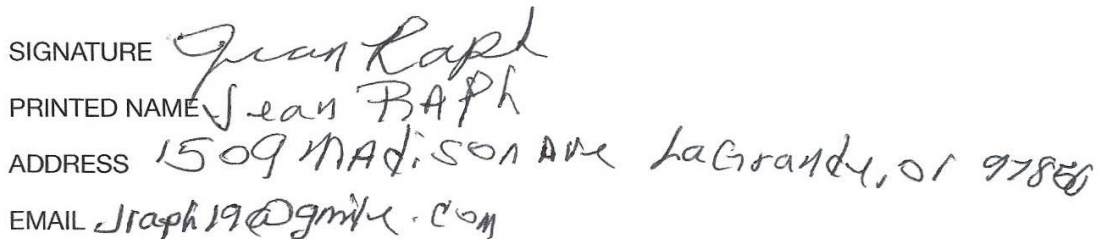 SIGNATURE Jean Raph
PRINTED NAME Jean RAPh
ADDRESS 1509 MADiSOn Ave LaGrande, or 97850
EMAIL Jraph19@gmile.com